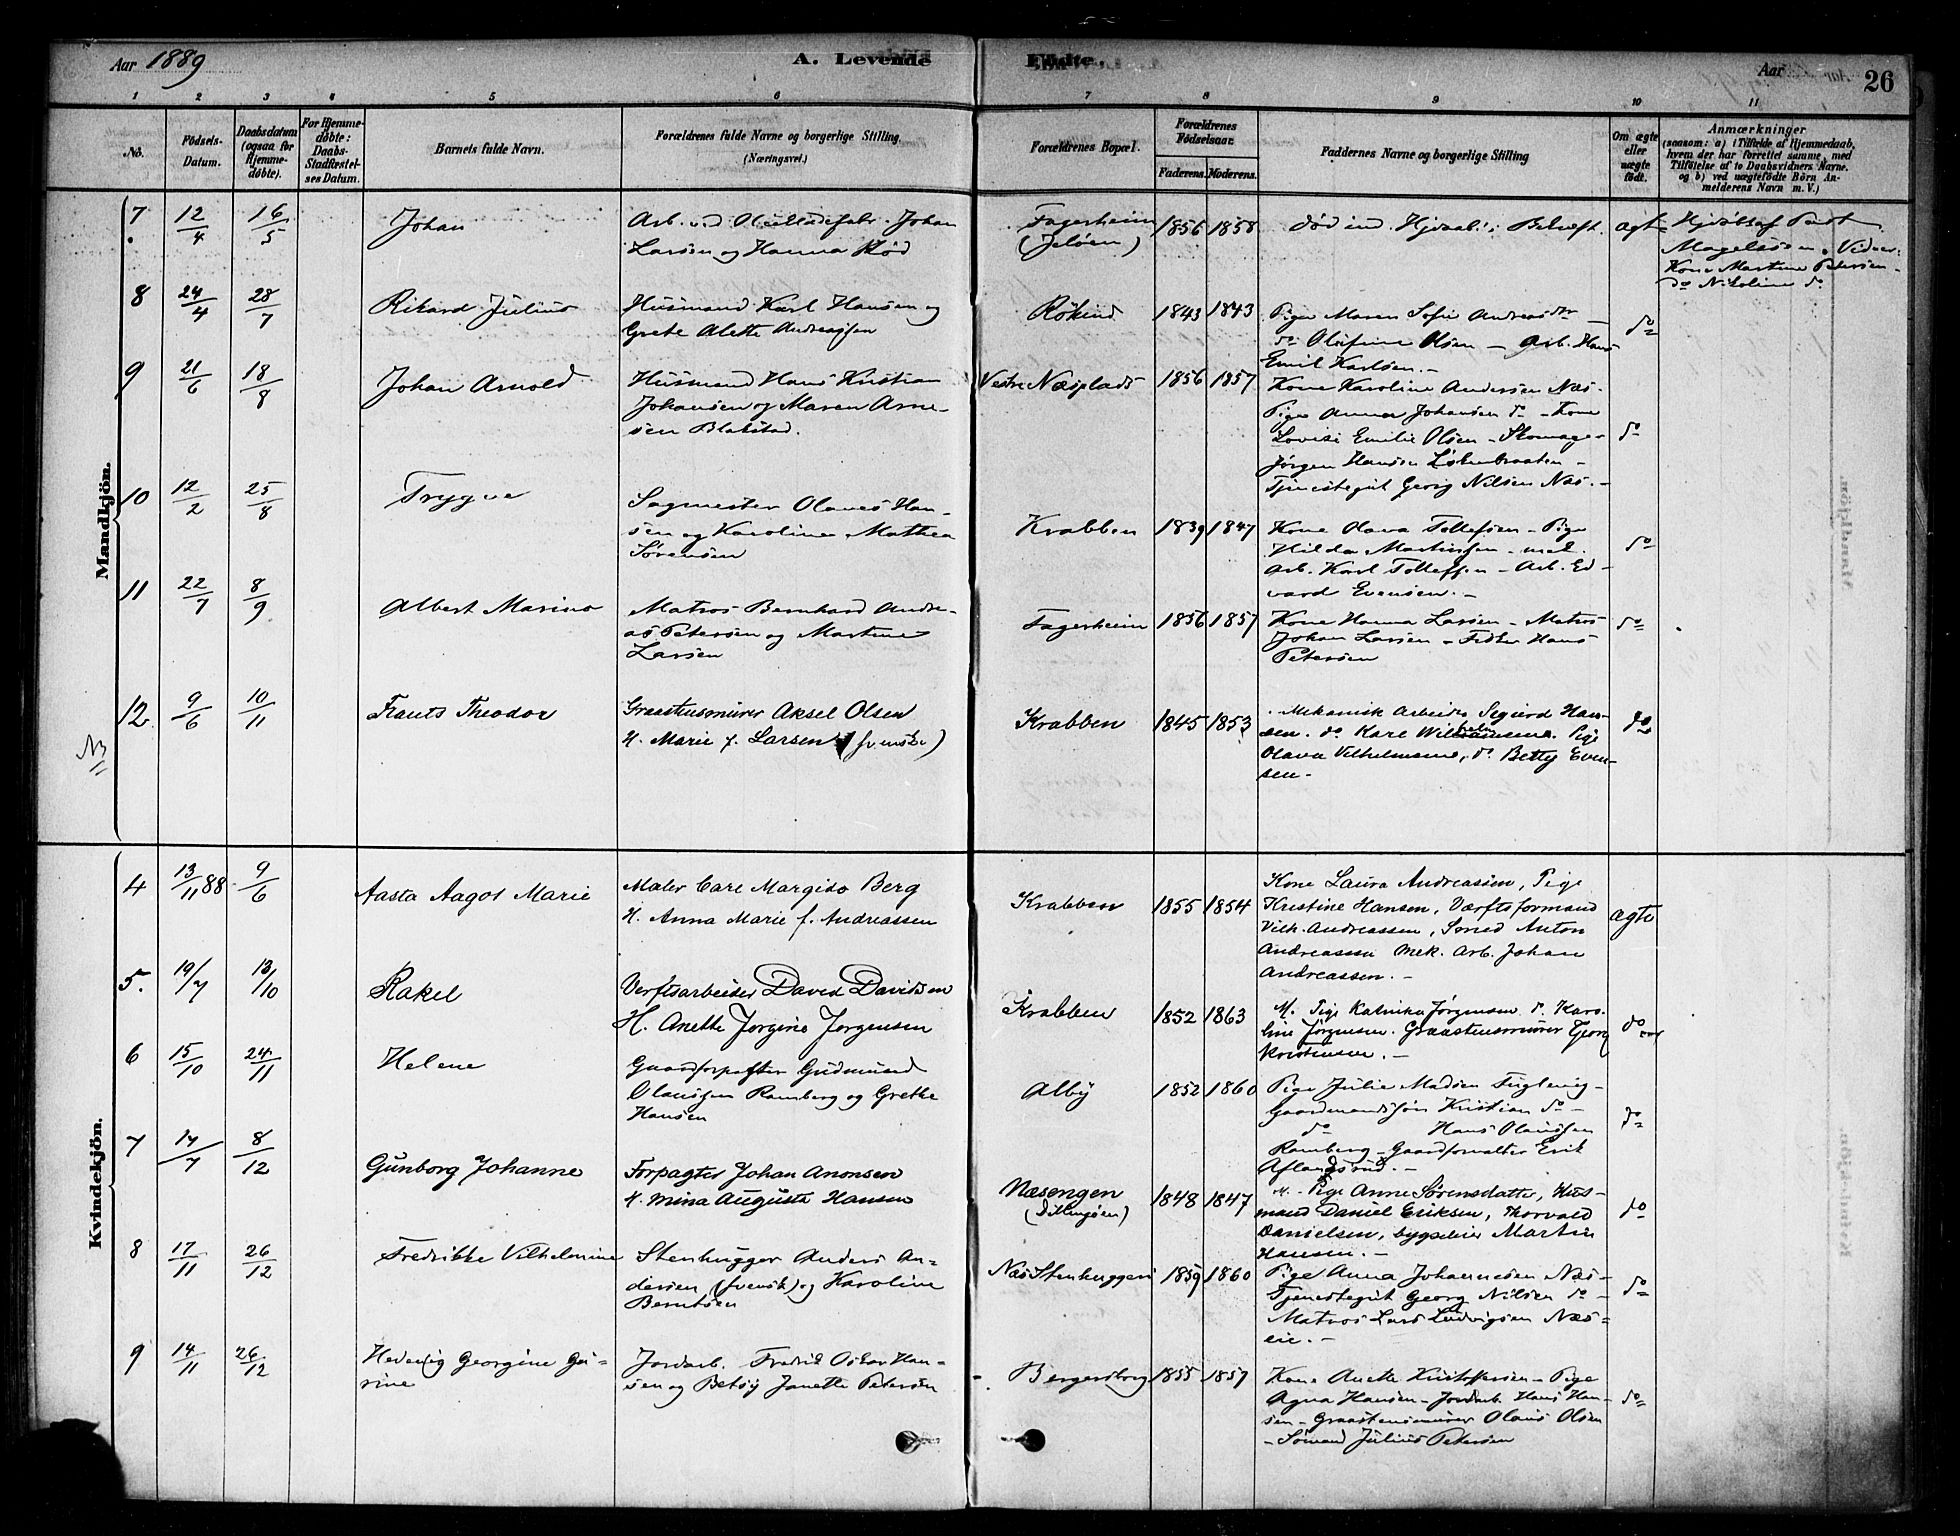 Aar 1889
A. Levende Fødte.
Aar
26
1 2 3 4 5 6 7 8 9 10 11
No.
Födsels-Datum.
Daabsdatum (ogsaa for Hjemmedøbte).
For Hjemmedøbte: Daabs-Stadfæstelses Datum.
Barnets fulde Navn.
Forældrenes fulde Navne og borgerlige Stilling. (Næringsvei.)
Forældrenes Bopæl.
Forældrenes Födselsaar.
Faderens. Moderens.
Faddernes Navne og borgerlige Stilling
Om ægte eller uægte født.
Anmærkninger
(saasom: a) i Tilfælde af Hjemmedaab, hvem der har forrettet samme, med Tilföielse af to Daabsvidners Navne, og b) ved uægtefödte Börn Anmelderens Navn m. V.)
Mandkjön.
7. 12/4 16/5 Johan
Arb. ved Johan
Larsen og Hanna
Fagerheim
(Jeløen)
1856 1858
død ind. Hjdaab
ægte
Magelssen
Kone Martine Petersen
do Nikoline do
8 24/4 28/7 Rikard Julius
Husmand Karl Hansen og
Grete Alette Andreassen
1843 1843
Pige Maren Sofie Andreasdtr
do Olefine Olsen – Arb. Hans
Emil Karlsen. –
do
9 21/6 18/8 Johan Arnold
Husmand Hans Kristian
Johansen og Maren Arne-
sen Blakstad.
Vestre Næsplads
1856 1857
Kone Karoline Andersen Næs.
Pige Anna Johansen do – Kone
Lovise Emilie Olsen – Skomager
Jørgen Hansen
Tjenestegut Georg Nilsen Næs. –
do
10 12/2 25/8 Trygve
Sagmester Olaves Han-
sen og Karoline Mathea
Sørensen
Krabben
1839 1847
Kone Olava Tollefsen – Pige
Hilda Martinsen –
Arb. Karl Tollefsen – Arb. Ed-
vard Evensen. –
do
11 22/7 8/9 Albert Marino
Matros Bernhard Andre-
as Petersen og Martine
Larsen
Fagerheim
1856 1857
Kone Hanna Larsen – Matros
Johan Larsen – Fisker Hans
Petersen
do
12. 9/6 10/11 Frants Theodor
Graastensmurer Aksel Olsen
H. Marie f. Larsen (svenske)
Krabben
1845 1853
Mekanisk Arbeider Sigurd Han-
sen. do Karl Wilhelmsen. Pige
Olava Vilhelmsen, do Betty Even-
sen –
do
NB
Kvindekjön.
4 13/11 88 9/6 Aasta Aagot Marie
Maler Carl Margido Berg
H. Anna Marie f. Andreassen
Krabben
1855 1854
Kone Laura Andreassen, Pige
Kristine Hansen, Værftsformand
Vilh. Andreassen, Smed Anton
Andreassen Mek. Arb. Johan
Andreassen. –
ægte
5. 19/7 13/10 Rakel
Verftsarbeider David Davidsen
H. Anette Jorgine Jørgensen
Krabben
1852 1863
M. Pige Katrinka Jørgensen do Karo-
line Jørgensen. Graastensmurer Georg
Kristensen. –
do
6 15/10 24/11 Helene
Gaardforpagter Gudmund
Olaussen Ramberg og Grethe
Hansen
Alby
1852 1860
Pige Julie Madsen Fuglevig –
Gaardmandssøn Kristian do –
do Hans Olaussen
Ramberg – Gaardforvalter Erik
Aflandsrud. –
do
7 17/7 8/12 Gunborg Johanne
Forpagter Johan Anonsen
H. Mina Augusta Hansen
Næsengen
(Dillingøen)
1848 1847
M. Pige Anne Sørensdatter, Hus-
mand Daniel Eriksen, Thorvald
Danielsen, bygseleier Martin
Hansen. –
do
8 17/11 26/12 Fredrikke Vilhelmine
Stenhugger Anders An-
dersen (svensk) og Karoline
Berntsen
Næs Stenhuggeri
1859 1860
Pige Anna Johannesen Næs –
Tjenestegut Georg Nilsen do –
Matros Lars Ludvigsen Næs-
eie. –
do
9 14/11 26/12 Hedevig Georgine Gu-
rine
Jordarb. Fredrik Oskar Han-
sen og Betsy Janette Petersen
Bergersborg
1855 1857
Kone Anette Kristoffersen – Pige
Agna Hansen – Jordarb. Hans Han-
sen – Graastensmurer Olaus Olsen
– Sømand Julius Petersen
do